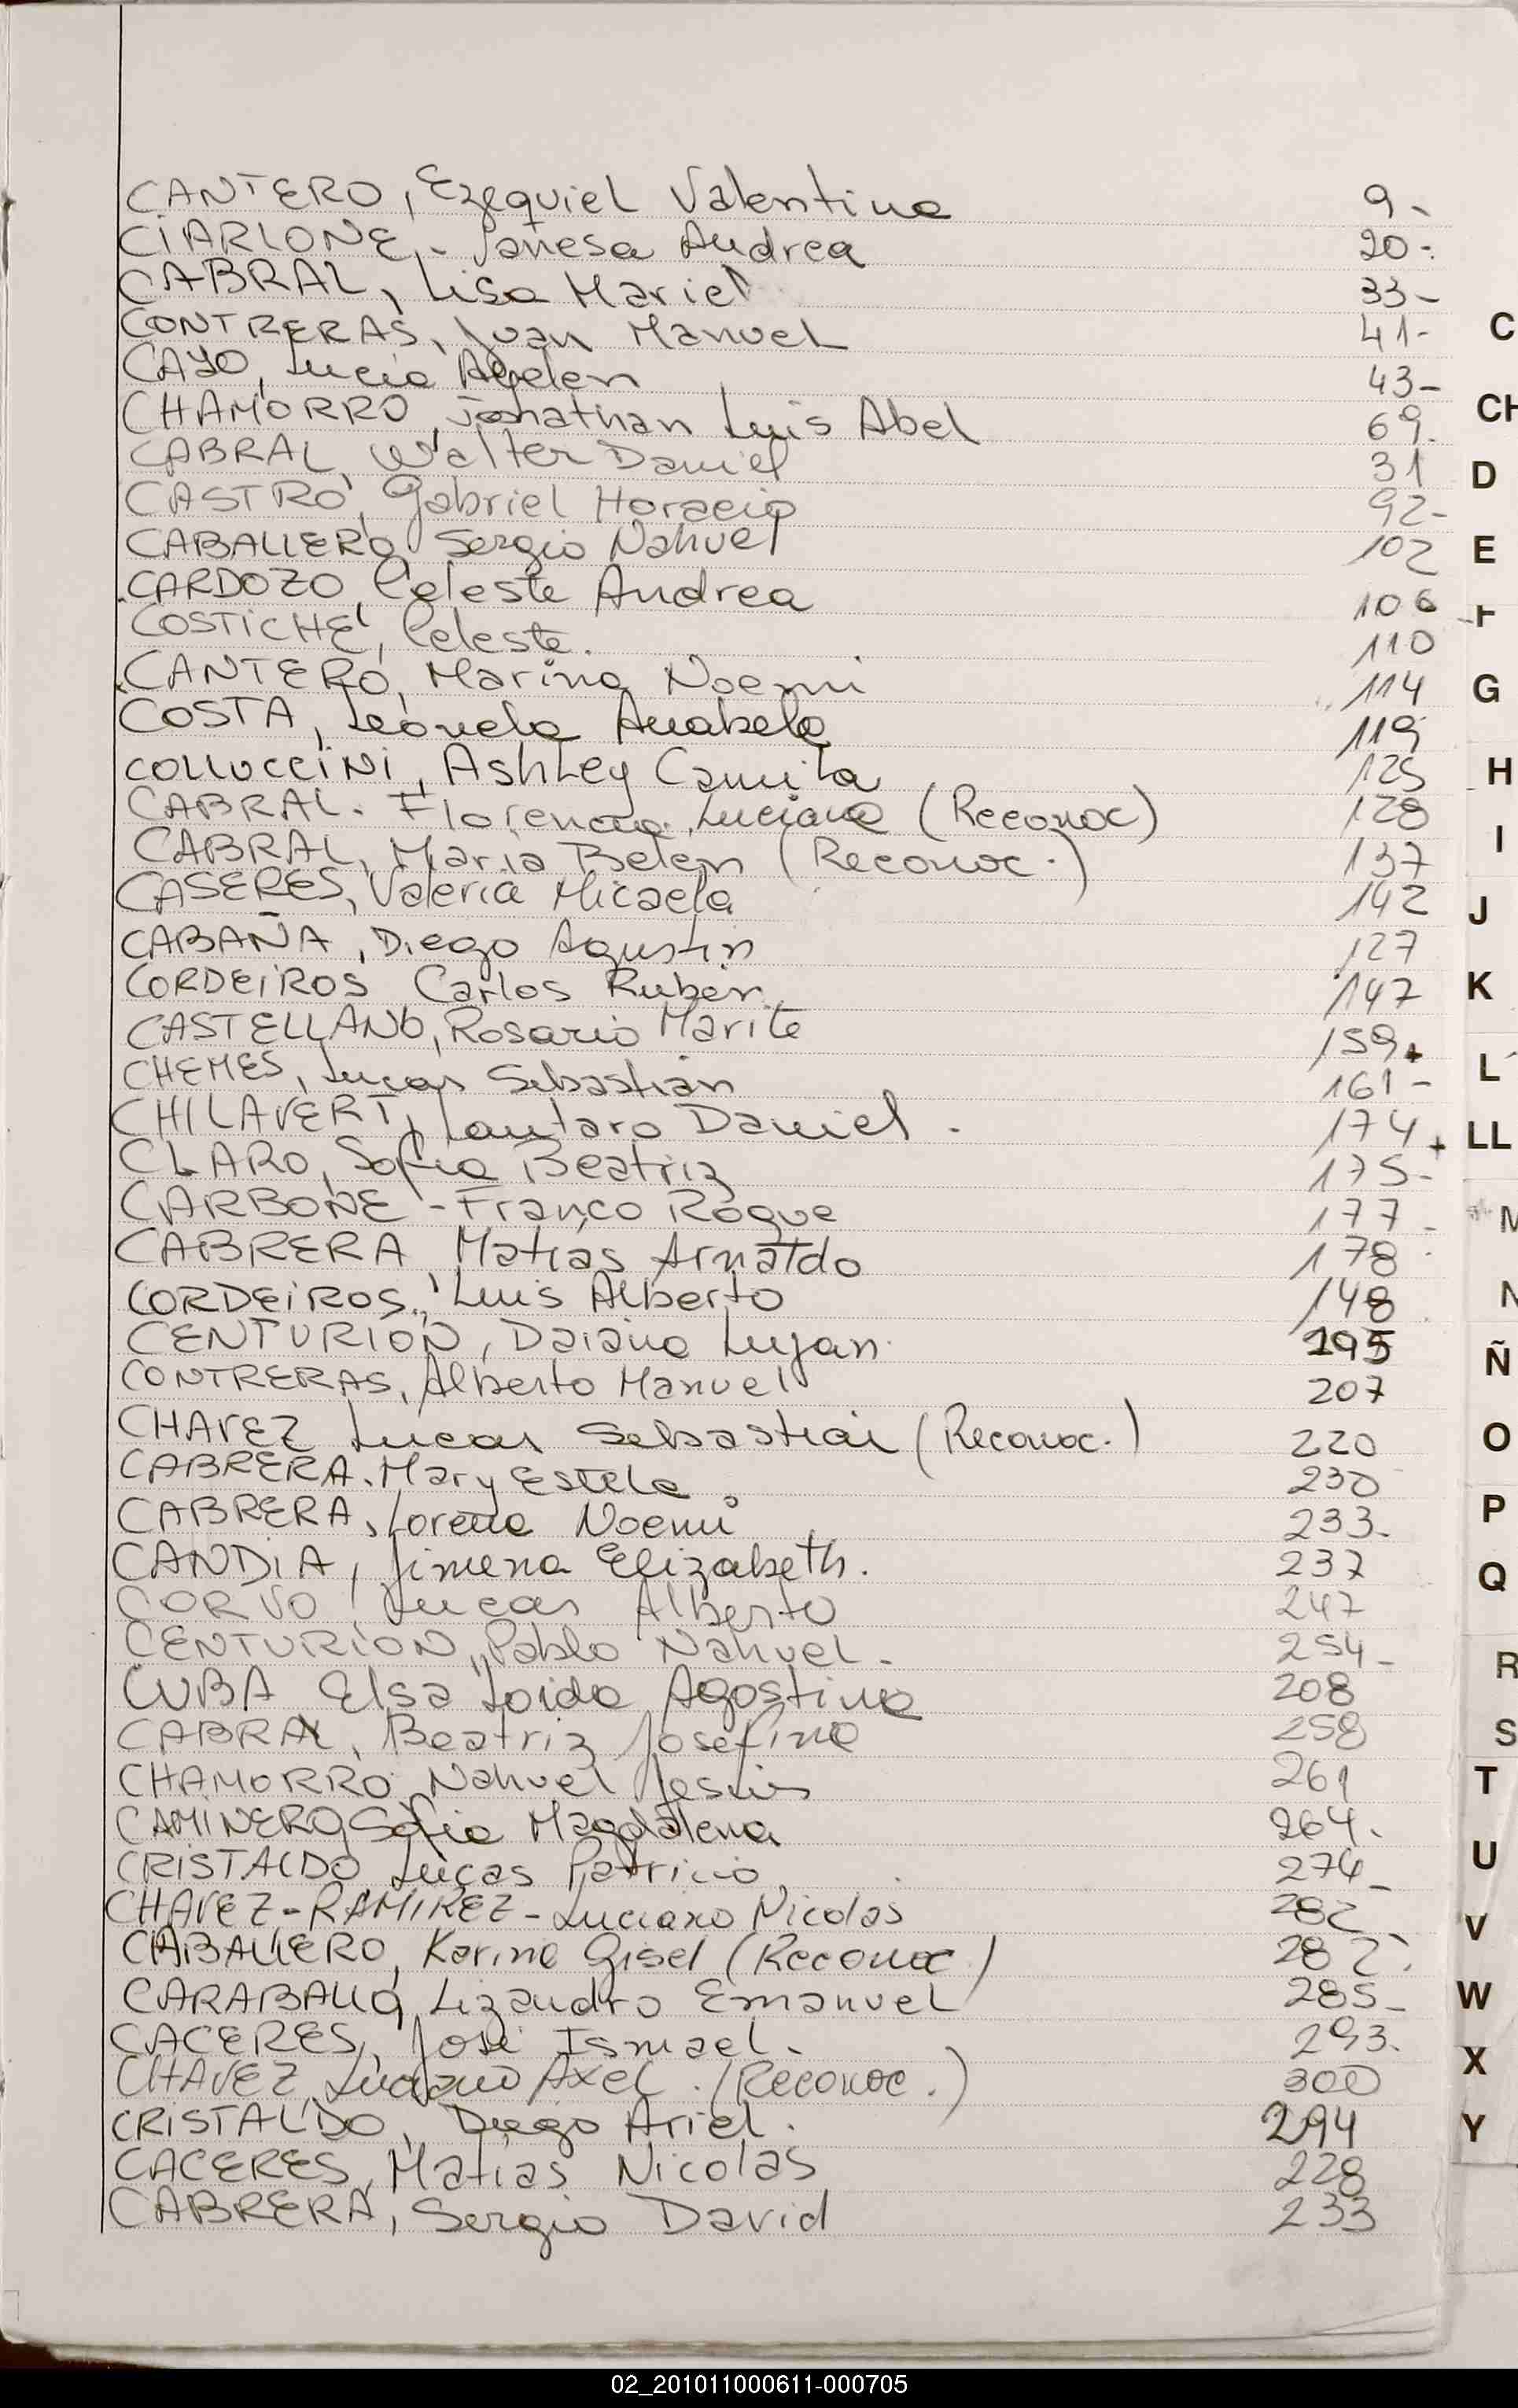 CANTERO, Ezequiel Valentino 9-
CIARLONE, - Vanesa Andrea 20-
CABRAL, Lisa Mariel 33-
CONTRERAS, Juan Manuel 41-
CAYO, Lucia Ayelen 43-
CHAMORRO, Jonathan Luis Abel 69.
CABRAL, Walter Daniel 31
CASTRO, Gabriel Horacio 92-
CABALLERO, Sergio Nahuel 102
CARDOZO, Celeste Andrea 106
COSTICHE, Celeste. 110
CANTERO, Marina Noemi 114
COSTA, Leonela Anabela 119
COLLUCCINI, Ashley Camila 125
CABRAL. Florencia Luciana (Reconoc) 128
CABRAL, Maria Belen (Reconoc.) 137
CASERES, Valeria Micaela 142
CABAÑA, Diego Agustin 127
CORDEIROS Carlos Ruben 147
CASTELLANO, Rosario Marite 159
CHEMES, Lucas Sebastian 161-
CHILAVERT, Lautaro Daniel. 174
CLARO, Sofia Beatriz 175-
CARBONE - Franco Roque 177-
CABRERA, Matias Arnaldo 178
CORDEIROS, Luis Alberto 148
CENTURION, Daiana Lujan 195
CONTRERAS, Alberto Manuel 207
CHAVEZ Lucas Sebastian (Reconoc.) 220
CABRERA. Mary Estela 230
CABRERA, Lorena Noemi 233-
CANDIA, Jimena Elizabeth. 237
CORVO, Lucas Alberto 247
CENTURION, Pablo Nahuel- 254-
CUBA Elsa Loida Agostina 208
CABRAL, Beatriz Josefina 258
CHAMORRO, Nahuel Jesus 261
CAMINERO, Sofia Magdalena 264.
CRISTALDO Lucas Patricio 274-
CHAVEZ-RAMIREZ-Luciano Nicolas 282
CABALLERO, Karina Gisel (Reconoc.) 282
CARABALLO, Lizandro Emanuel 285-
CACERES, José Ismael. 293.
CHAVEZ, Luciano Axel. (Reconoc.) 300
CRISTALDO, Diego Ariel. 294
CACERES, Matias Nicolas 228
CABRERA, Sergio David 233
C
CH
D
E
F
G
H
I
J
K
L
LL
M
N
Ñ
O
P
Q
R
S
T
U
V
W
X
Y
02_201011000611-000705